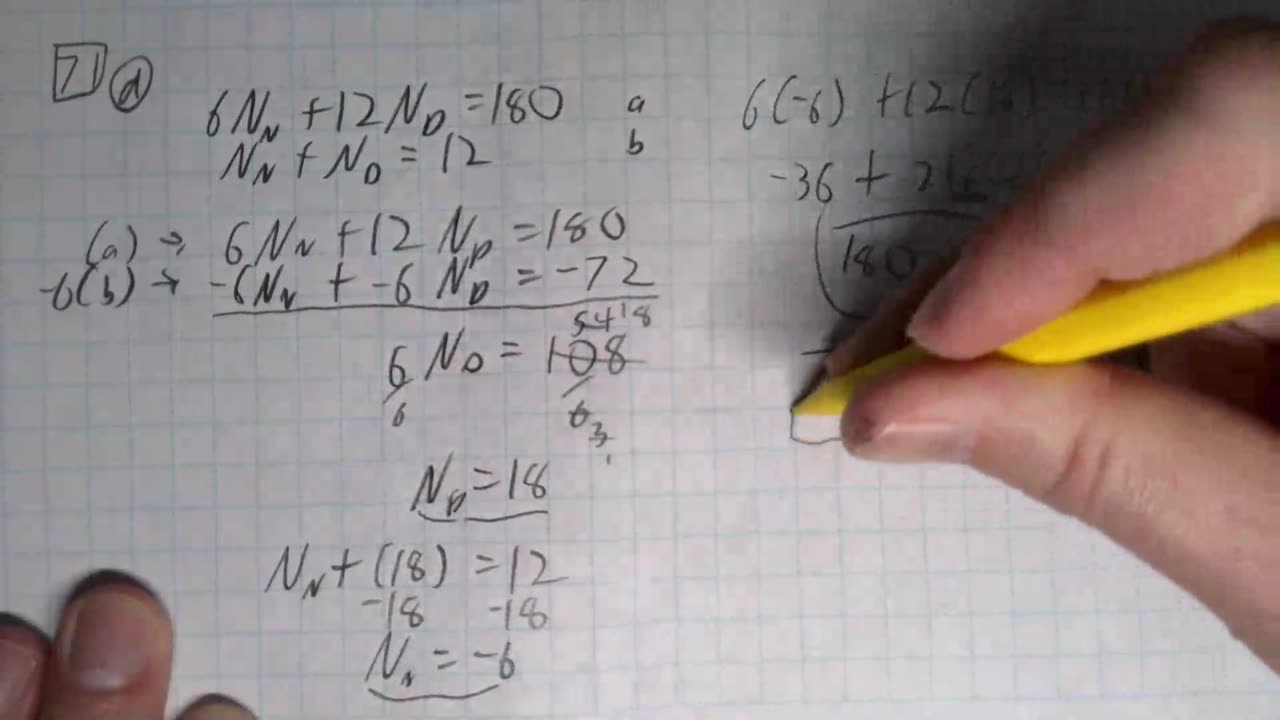 7 d
6N_N + 12N_D = 180 a
N_N + N_D = 12 b
(a) → 6N_N + 12 N_D = 180
-6(b) → -6N_N + -6 N_D = -72
54 18
6 N_D = 108
6 6
3
1
N_D = 18
N_N + (18) = 12
-18 -18
N_N = -6
6(-6) + 12(
-36 + 21
180